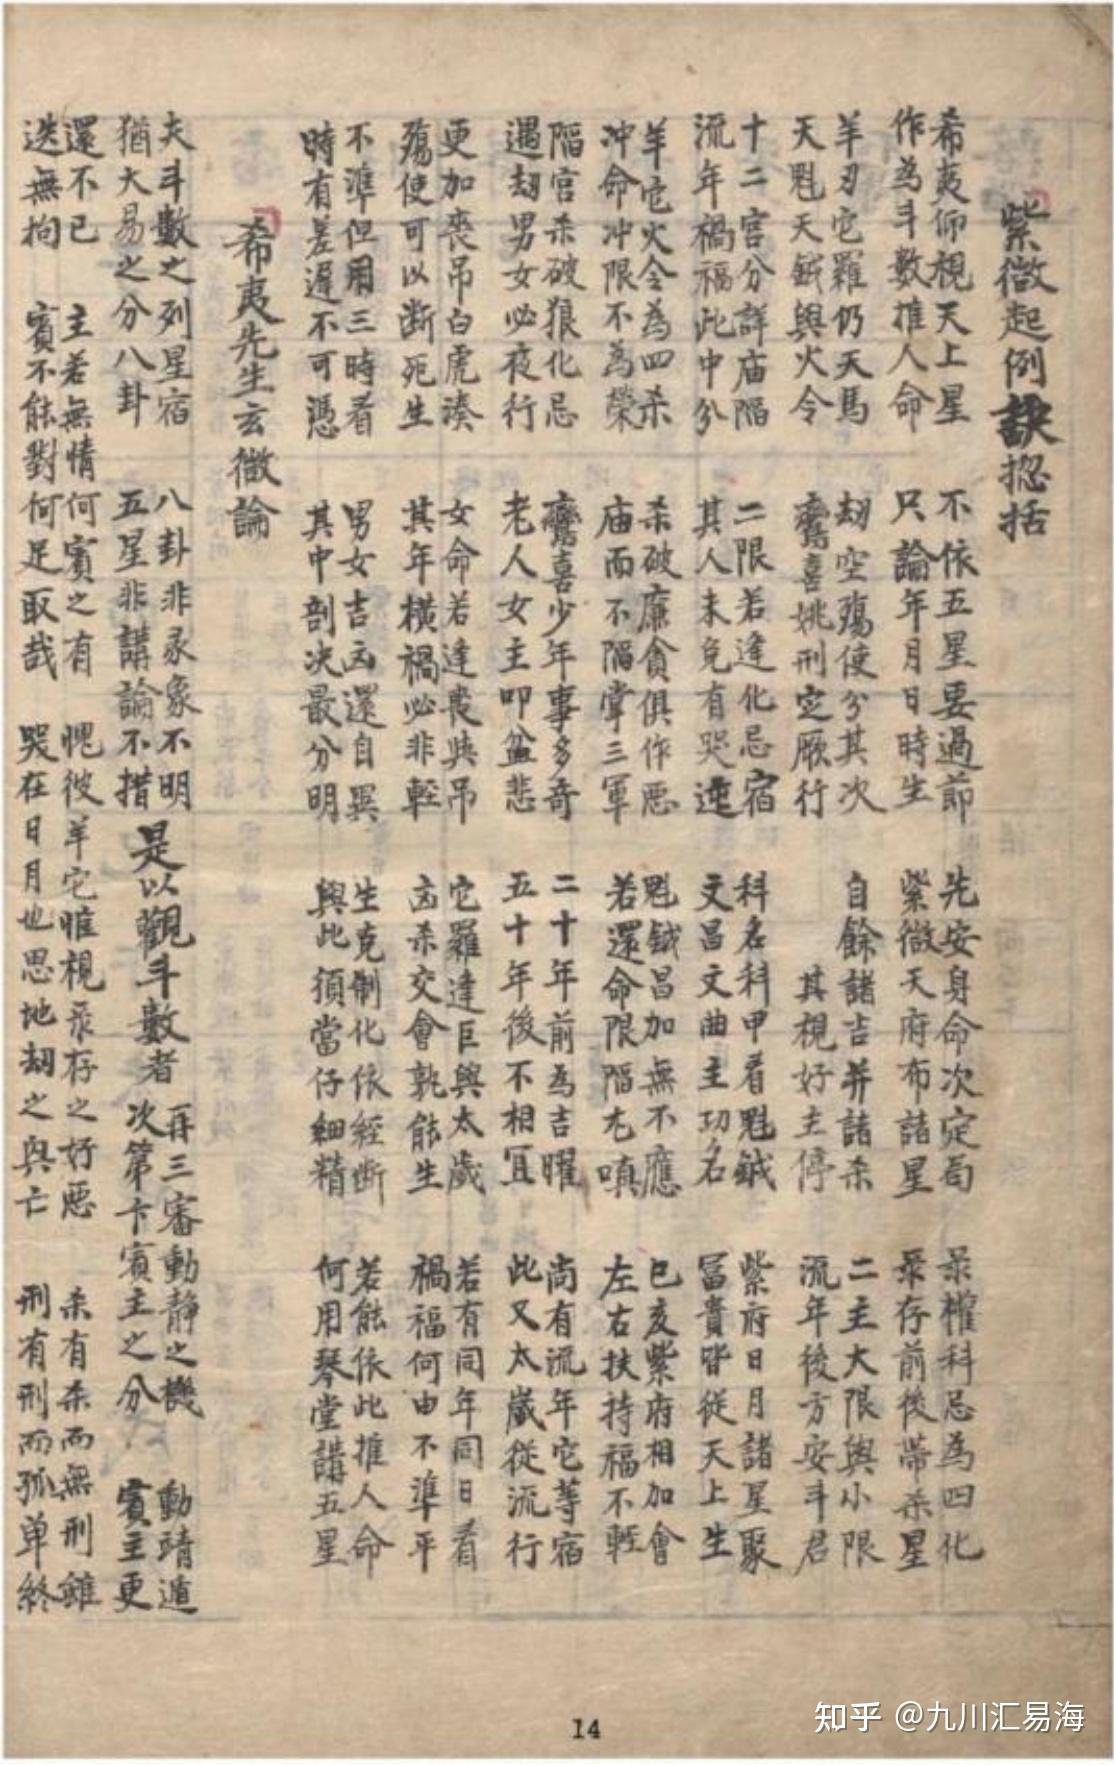 紫微起例訣捴括
希夷仰視天上星
作為斗數推人命
不依五星要過節
只論年月日時生
先安身命次定局
紫微天府布諸星
彔權科忌為四化
彔存前後帶杀星
羊刃它羅仍天馬
天魁天鉞與火令
刼空殤使分其次
鸞喜姚刑定厥行
自餘諸吉并諸杀
其視好主停
二主大限與小限
流年後方安斗君
十二宫分詳庙陷
流年禍福此中分
二限若逢化忌宿
其人未免有哭逆
科名科甲看魁鉞
文昌文曲主功名
紫府日月諸星聚
富貴皆從天上生
羊它火令為四杀
冲命冲限不為榮
杀破廉貪俱作悪
庙而不陷掌三軍
魁鉞昌加無不應
若還命限陷尤嗔
巳亥紫府相加會
左右扶持福不軽
陷宫杀破狼化忌
遇刼男女必夜行
鸞喜少年事多奇
老人女主叩盆悲
二十年前為吉曜
五十年後不相冝
尚有流年它等宿
此又太歲從流行
更加喪吊白虎湊
殤使可以断死生
女命若逢喪與吊
其年横禍必非軽
它羅逢巨與太歲
凶杀交會孰能生
若有同年同日看
禍福何由不準平
不準但用三時看
時有差遲不可憑
男女吉凶還自異
其中剖决最分明
生克制化依経断
與此須當仔細精
若能依此推人命
何用琴堂講五星
希夷先生玄微論
夫斗數之列星宿
猶大易之分八卦
八卦非彖象不明
五星非講論不措
是以觀斗數者
再三審動静之機
次第卞賓主之分
動靖遁
賓主更
還不已
迭無拘
主若無情何賓之有
賓不能對何足取哉
愰彼羊它惟視彔存之好悪
哭在日月也思地刼之與亡
杀有杀而無刑雖
刑有刑而孤单終
14
知乎 @九川汇易海